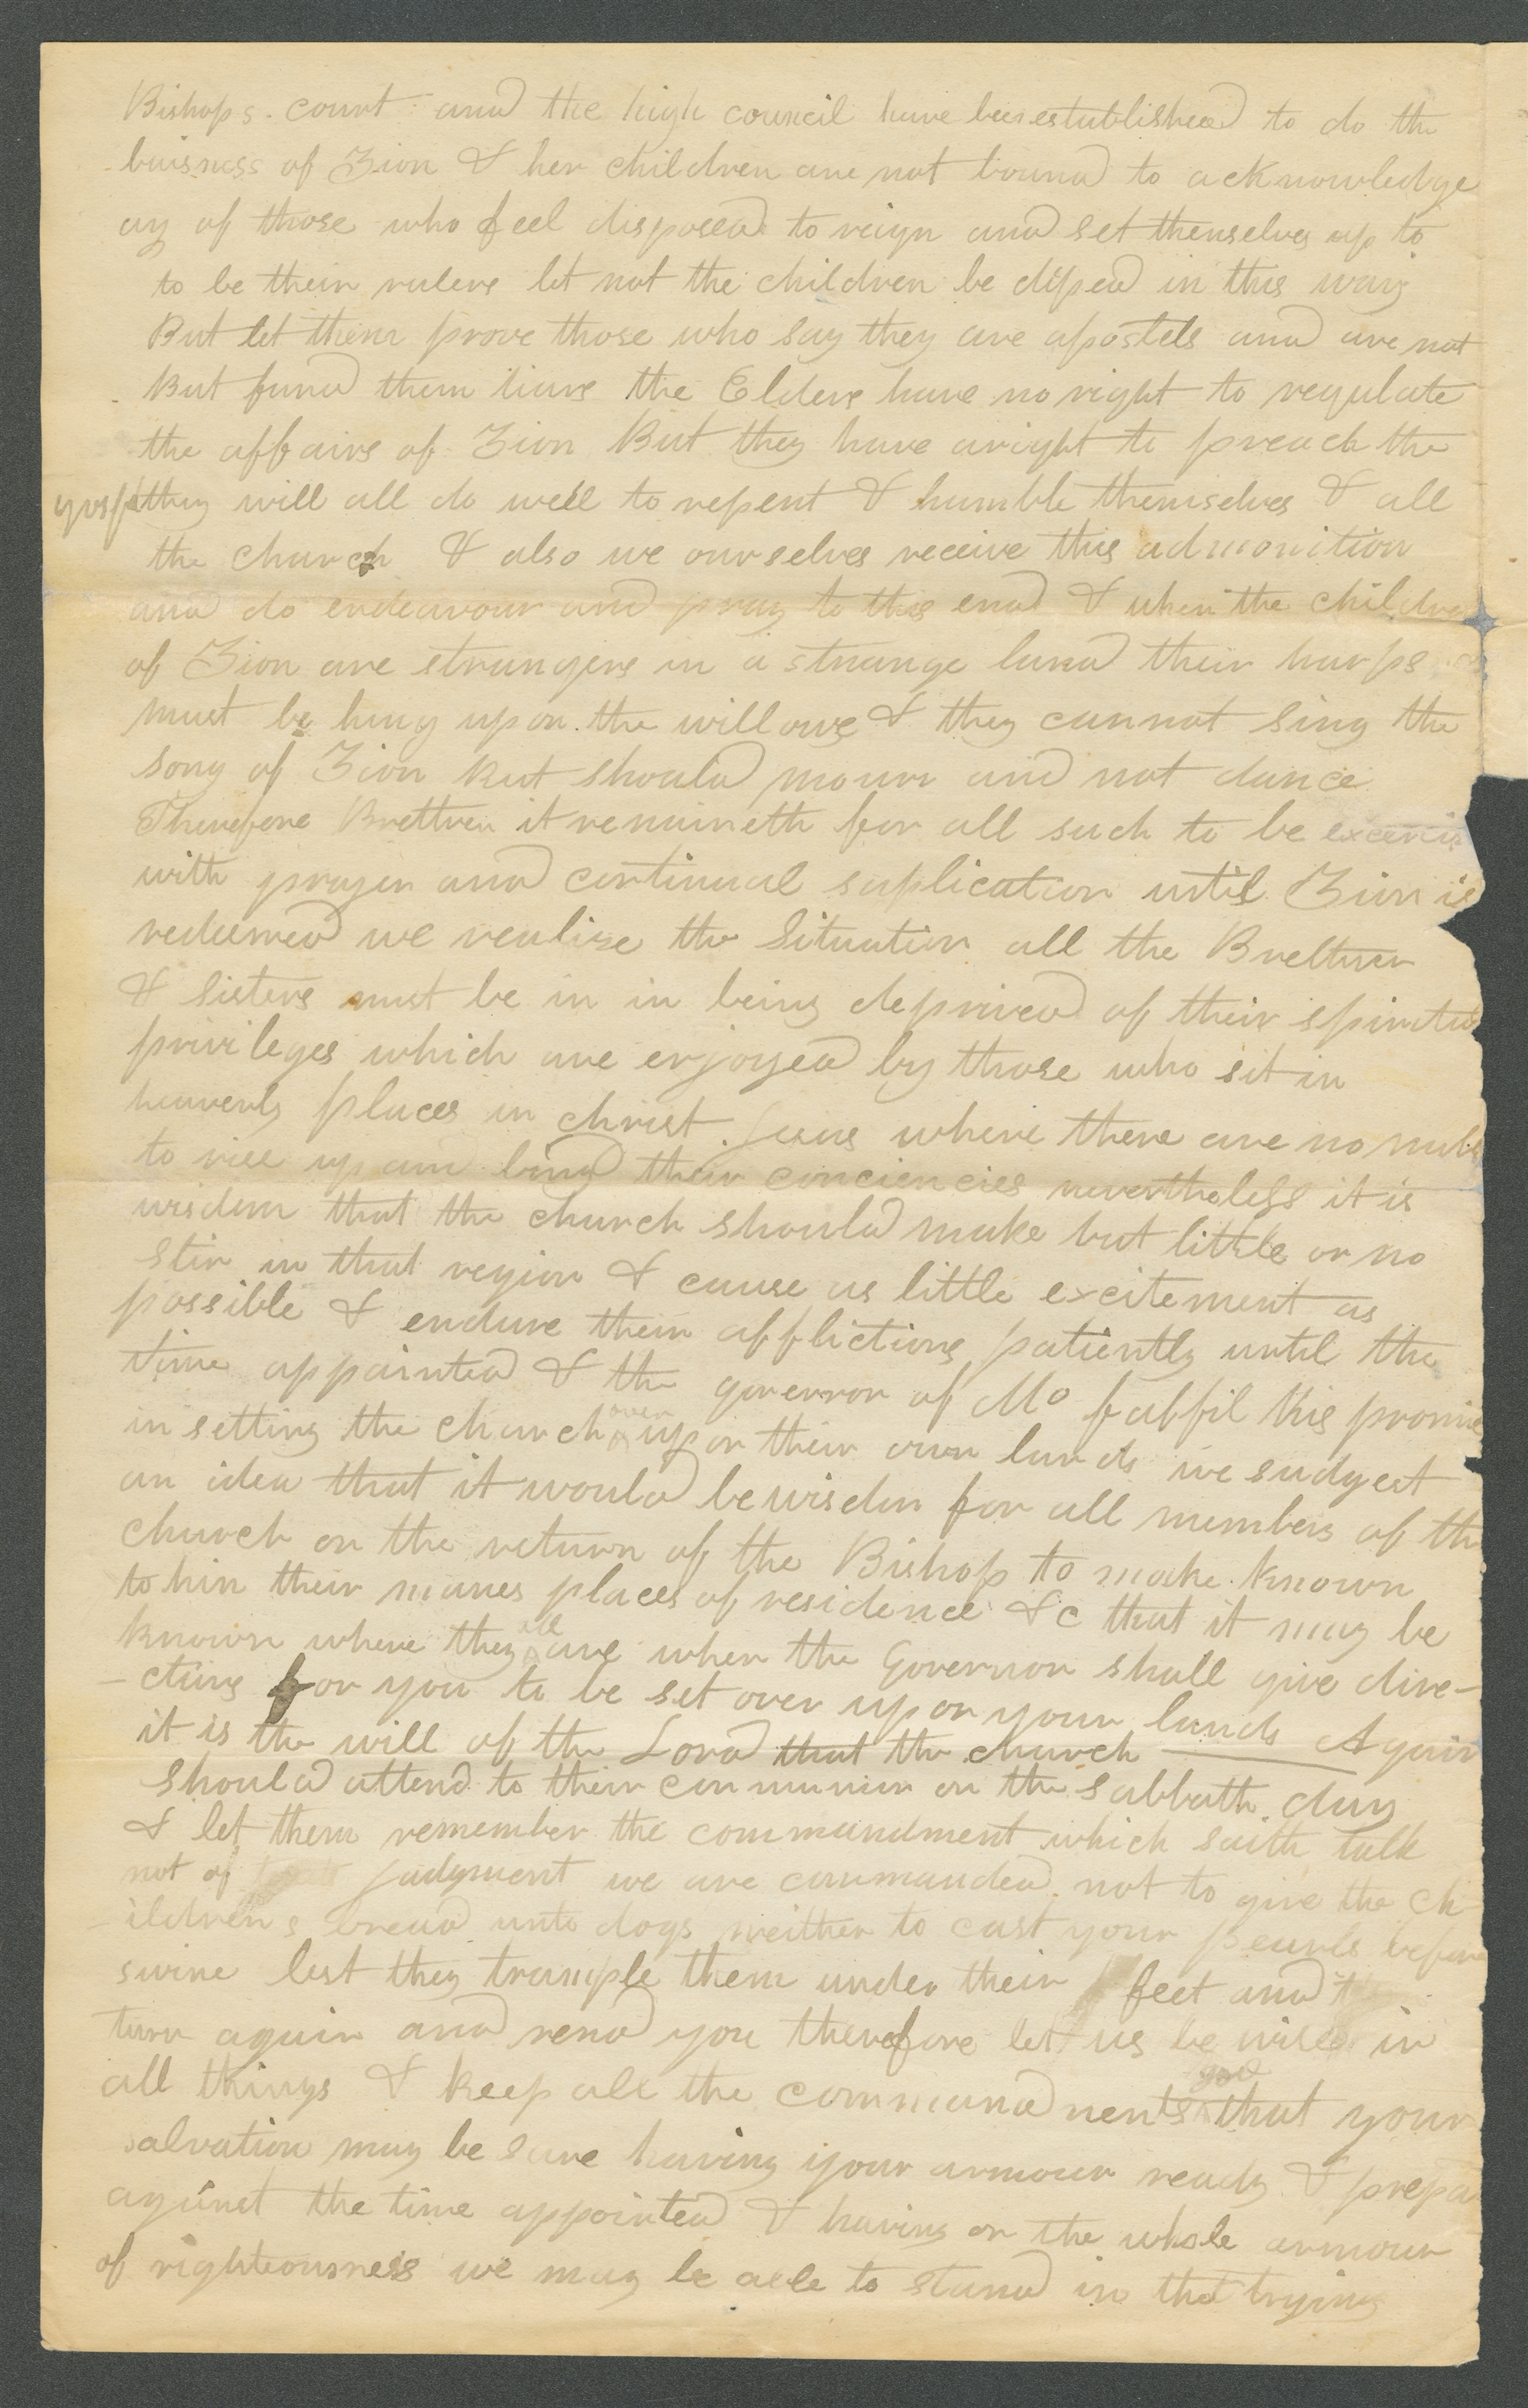 Bishops. court and the high council have been established to do the
buisness of Zion & her children are not bound to acknowledge
any of those who feel disposed to reign and set themselves up to
to be their rulers let not the children be diped in this way
But let them prove those who say they are apostels and are not
But fund them liars the Elders have no right to regulate
the affairs of Zion But they have aright to preach the
gospel they will all do well to repent & humble themselves & all
the church & also we ourselves receive this admonition
and do endeavour and pray to this end & when the children
of Zion are strangers in a strange land their harps
must be hung upon the willows & they cannot sing the
song of Zion but should mourn and not dance
Therefore Brethren it remaineth for all such to be
with prayer and continual suplication until Zion is
redeemed we realise the Situation all the Brethren
& Sisters must be in in being deprived of their
privileges which are enjoyed by those who sit in
heavenly places in christ Jesus where there are no mobs
to rise up and bind their conciencies nevertheless it is
wisdom that the church should make but little or no
stir in that region & cause as little excitement as
possible & endure their afflictions patiently until the
time appointed & the governor of Mo fulfil his promise
in setting the church over upon their own lands we sudgest
an idea that it would be wisdom for all members of the
church on the return of the Bishop to make known
to him their names places of residence &c that it may be
known where they all are when the Governor shall give dire-
-ctions for you to be set over upon your lands Again
it is the will of the Lord that the church
should attend to their communion on the sabbath day
& let them remember the commandment which saith talk
not of judgment we are commanded not to give the ch
-ildrens bread unto dogs neither to cast your pearls before
swine lest they trample them under their feet and
turn again and rend you therefore let us be wise in
all things & keep all the commandments god that your
salvation may be sure having your armour ready &
against the time appointed & having on the whole armour
of righteousness we may be able to stand in that trying